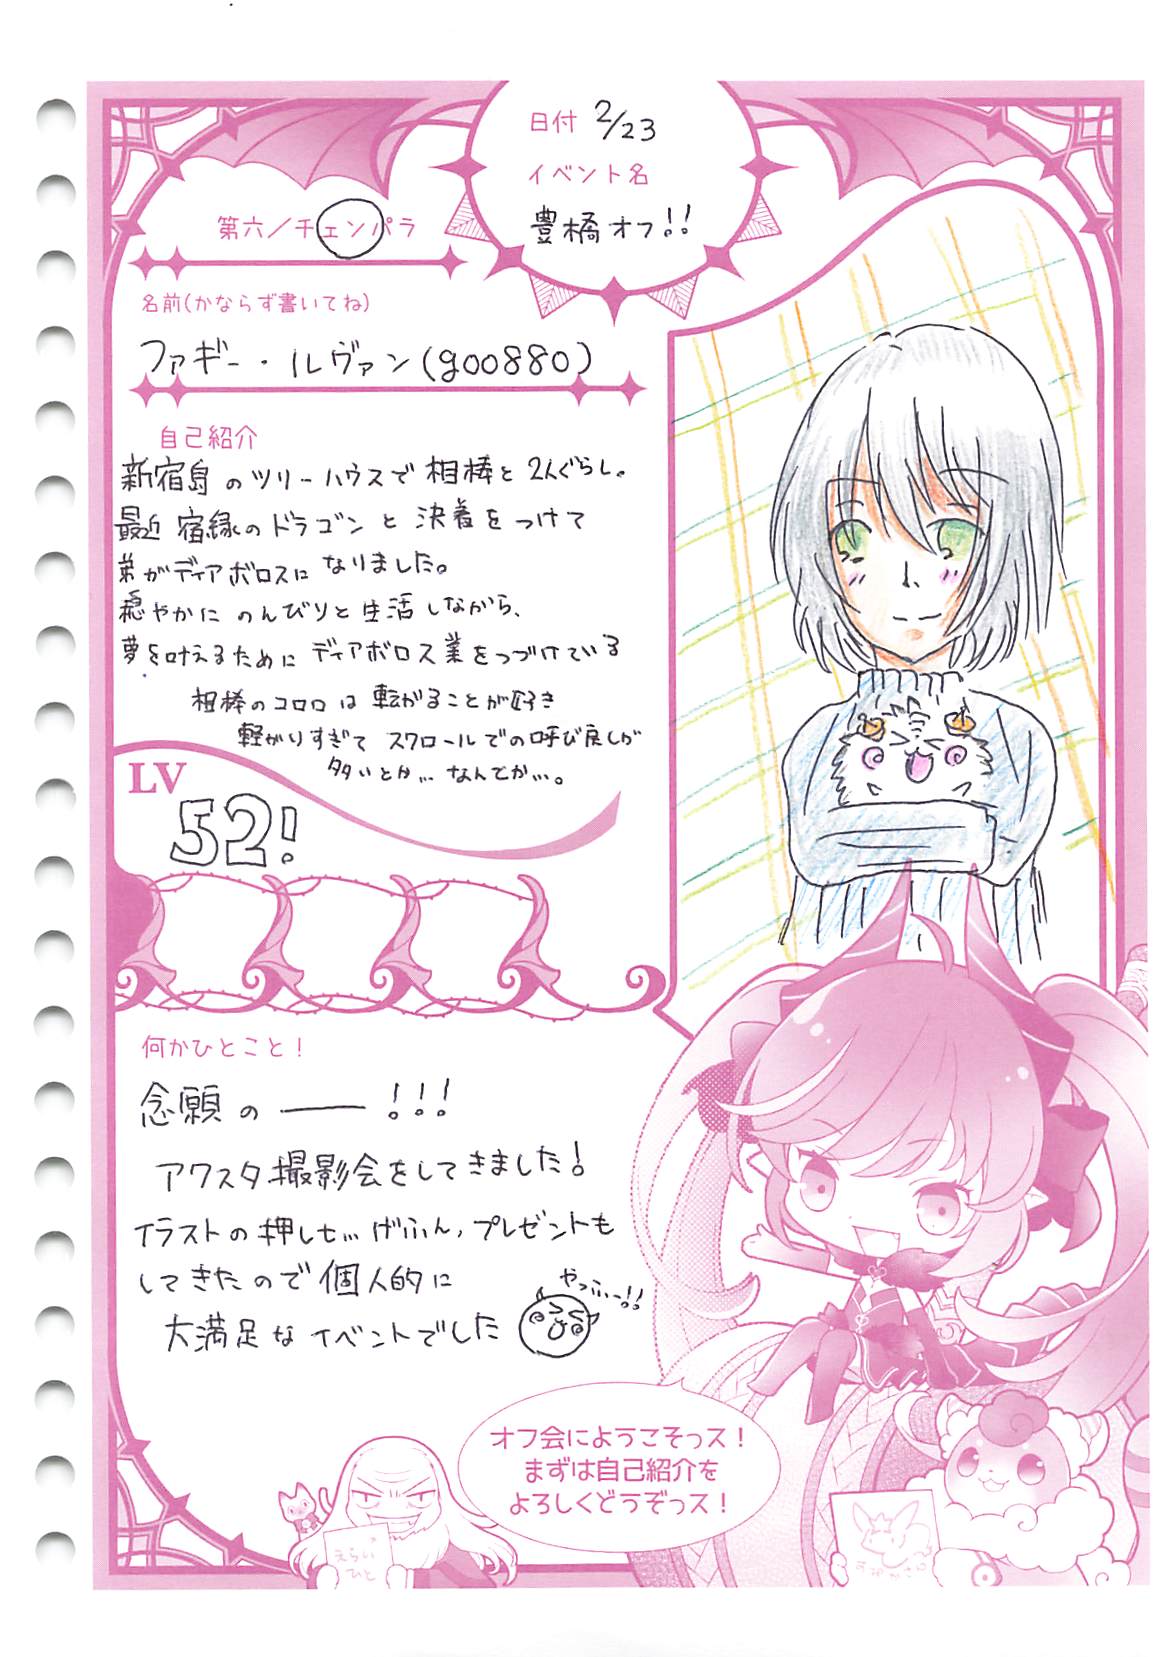 日付 2/23
イベント名
豊橋オフ!!
第六／チェンパラ
名前(かならず書いてね)
ファギー・ルヴァン(g00880)
自己紹介
新宿島のツリーハウスで相棒と2人ぐらし。
最近宿縁のドラゴンと決着をつけて
弟がディアボロスになりました。
穏やかにのんびりと生活しながら、
夢を叶えるためにディアボロス業をつづけている
相棒のコロロは転がることが好き
転がりすぎてスクロールでの呼び戻しが
多いとか…なんてか…。
LV
52!
何かひとこと！
念願の――!!!
アクスタ撮影会をしてきました!
イラストの押しも…げふん,プレゼントも
してきたので個人的に
大満足なイベントでした
やっふぃー!!
オフ会にようこそっス！
まずは自己紹介を
よろしくどうぞっス！
えらい
ひと